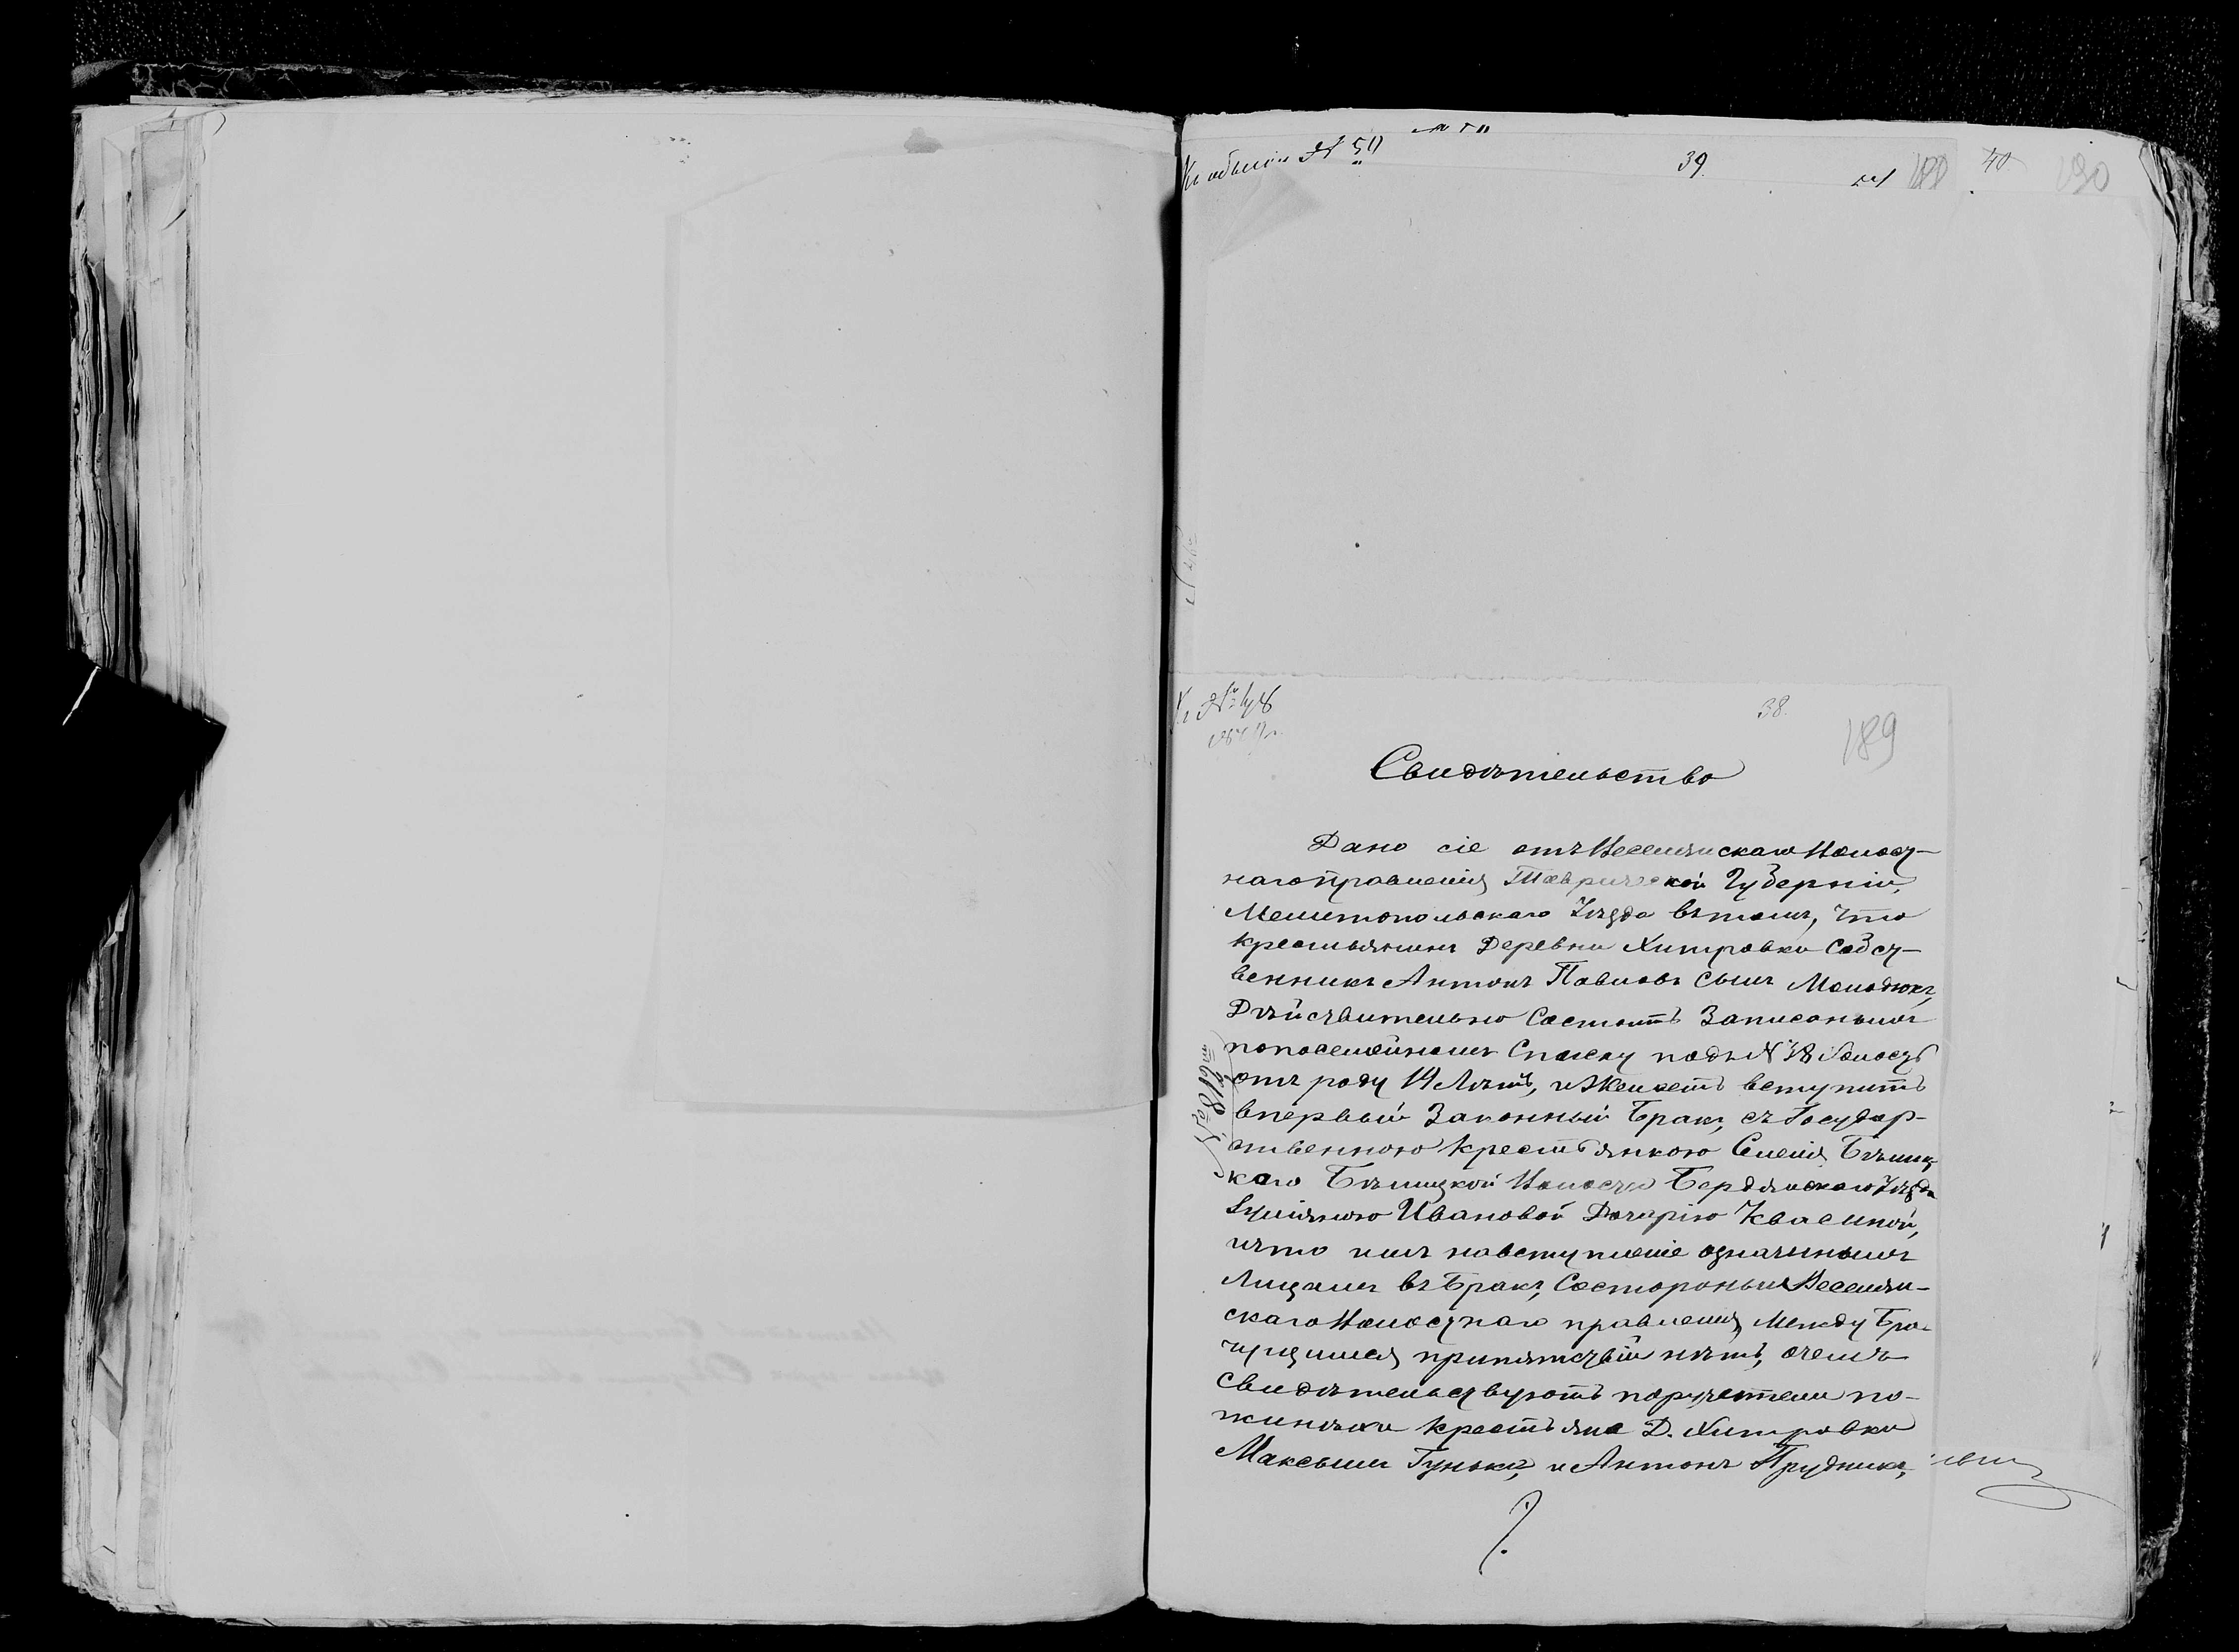 Къ обыску № 50
39.
40.
190
38.
189
Свидѣтельство
Дано сіе отъ Веселянскаго Волост-
наго правленія Таврической Губерніи,
Мелитопольскаго Уѣзда втомъ, что
крестьянинъ Деревни Хитровки собст-
венникъ Антонъ Павловъ сынъ Молодюкъ,
Дѣйствительно Состоитъ Записонымъ
попосемейномъ Списку подъ № 38
отъ роду 19 Лѣтъ, и Желаетъ вступить
впервый Законный Бракъ, съ Государ-
ственною крестьянкою Селенія Бѣлиц-
каго Бѣлицкой Волости Бердянскаго Уѣзда
Іуліяною Ивановой Дочерію
ичто имъ навступленіе одначинымъ
Лицамъ въ Бракъ, Состороныи Веселян-
скаго Волостнаго правленія, Между Бра-
чущимися припятствій нѣтъ, очемъ
Свидѣтельствуютъ поручетели по-
жиняки крестьяне Д. Хитровки
Максымъ Гунька, и Антонъ Прудникъ,